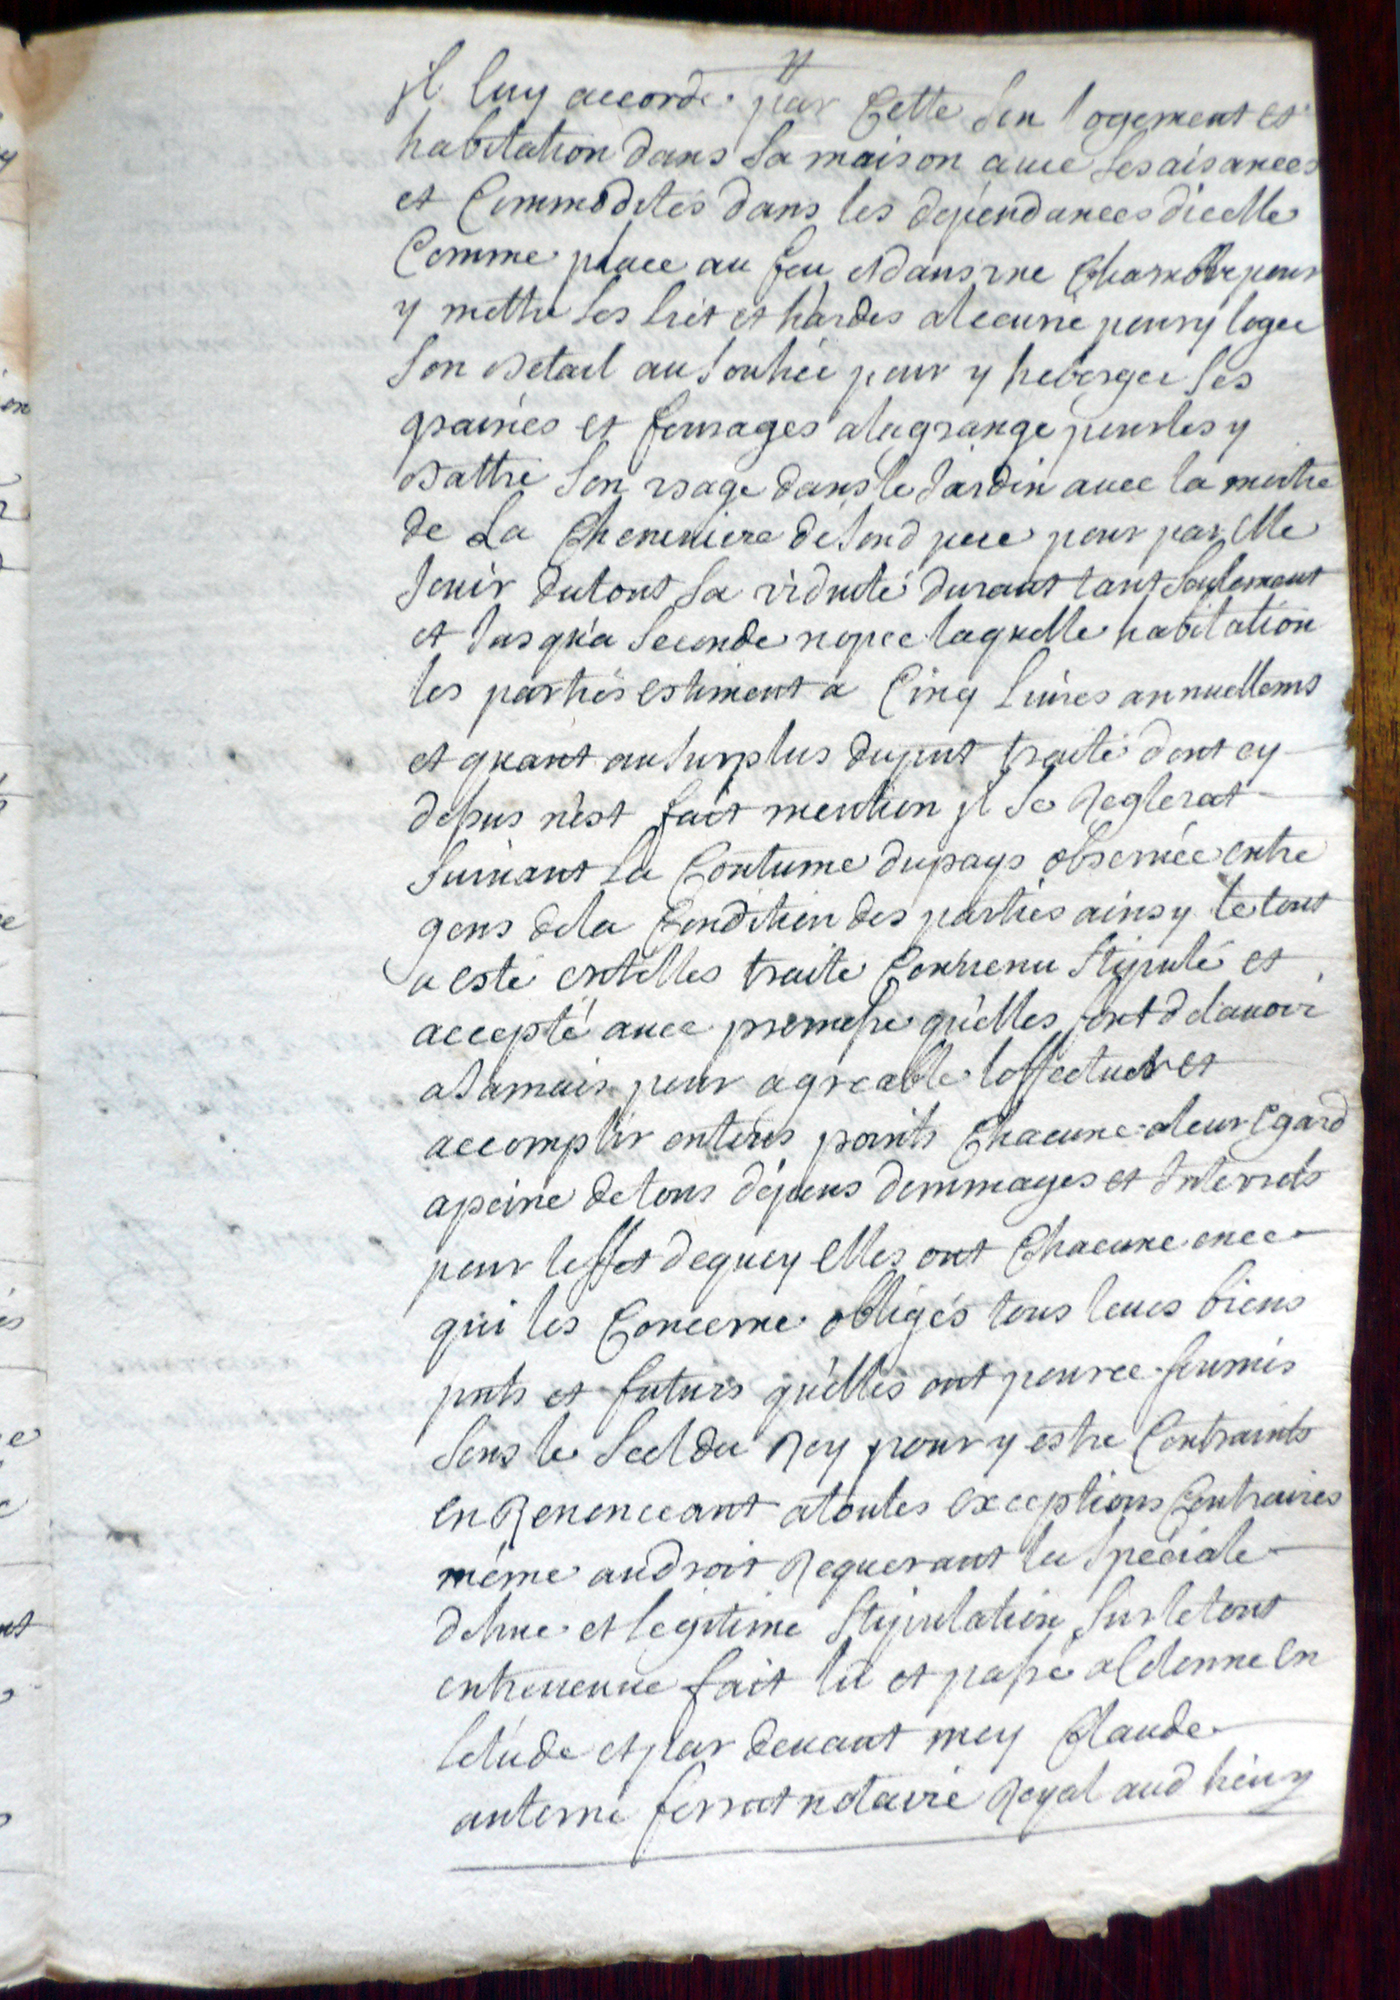 jl luy accorde par Cette Son logement et
habitation dans Sa maison avec Ses aisances
et Commodités dans les dépendances dicelle
Comme place au feu et dans une Chambre pour
y mettre Ses Lict et hardes a lecurie pour y loger
Son Betail au Soulier pour y heberger Ses
graines et fourages a la grange pour les y
Battre Son usage dans le Jardin avec la moitie
de La Cheneviere de Sond pere pour par Elle
Jouir du tout Sa viduité durant tant Seulement
et Jusqua Seconde nopce laquelle habitation
les parties estiment a Cinq Livres annuellemt
et quant au Surplus du pnt traité dont cy
desus nest fait mention jl Se Reglerat
Suivant La Coutume du pays observée entre
gens de la Condition des parties ainsy le tout
a esté entelles traité Convenu Stipulé et
accepté avec promesse quelles font de lavoir
a Jamais pour agreable leffectuer et
accomplir en tous points Chacune a leur Egard
a peine de tous dépens dommages et Interrets
pour leffet dequoy Elles ont Chacune en ce
qui les Concerne obligés tous leurs biens
pnts et futurs quelles ont pour ce Soumis
Sous le Scel du Roy pour y estre Contraints
en Renonceant a toutes exceptions Contraires
méme au droit Requerant la Spéciale
dehue et legitime Stipulation Sur le tout
entrevenue fait lu et passé a Cdonne En
letude et par devant moy Claude
antoine ferrat notaire Royal aud lieu